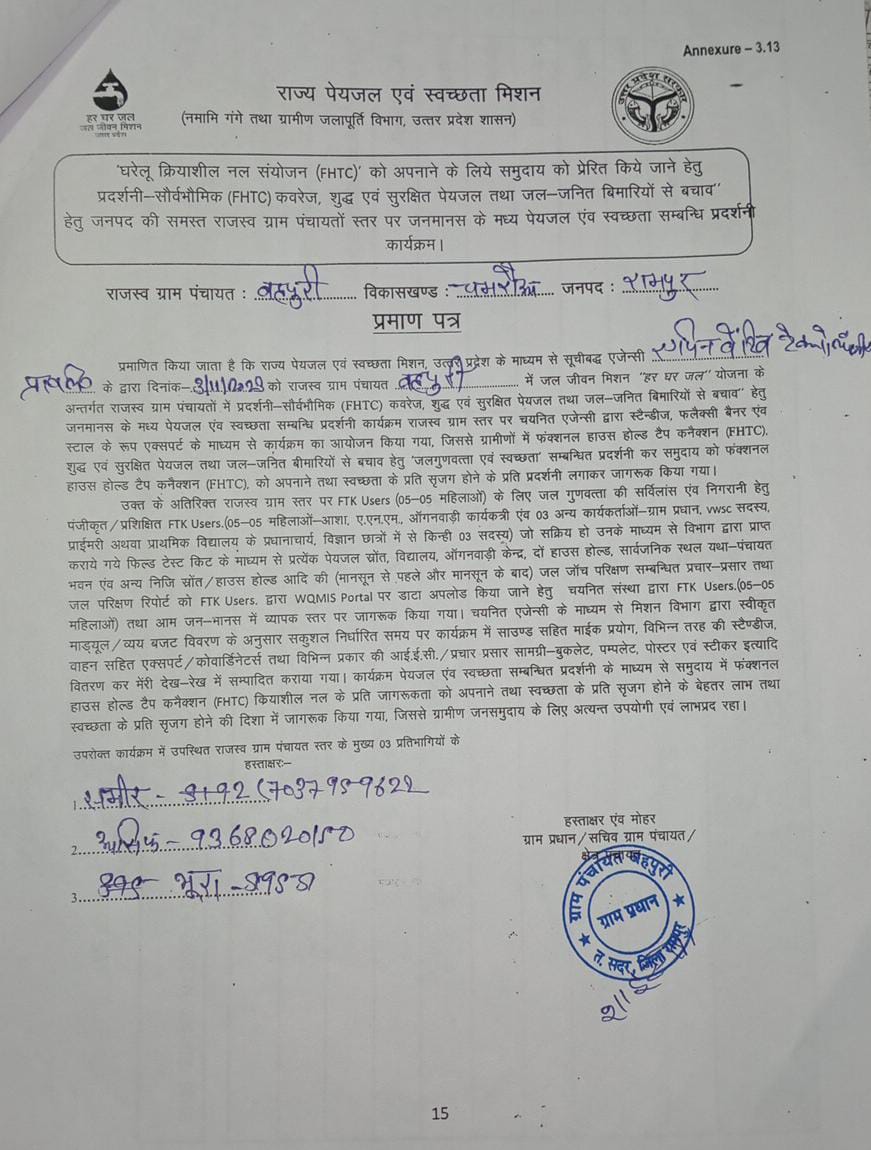 Annexure – 3.13
हर घर जल
जल जीवन मिशन
उत्तर प्रदेश
राज्य पेयजल एवं स्वच्छता मिशन
(नमामि गंगे तथा ग्रामीण जलापूर्ति विभाग, उत्तर प्रदेश शासन)
उत्तर प्रदेश सरकार
'घरेलू क्रियाशील नल संयोजन (FHTC)' को अपनाने के लिये समुदाय को प्रेरित किये जाने हेतु
प्रदर्शनी–सौर्वभौमिक (FHTC) कवरेज, शुद्ध एवं सुरक्षित पेयजल तथा जल–जनित बिमारियों से बचाव"
हेतु जनपद की समस्त राजस्व ग्राम पंचायतों स्तर पर जनमानस के मध्य पेयजल एंव स्वच्छता सम्बन्धि प्रदर्शनी
कार्यक्रम।
राजस्व ग्राम पंचायत : बहपुरी विकासखण्ड : चमरौआ जनपद : रामपुर
प्रमाण पत्र
प्रमाणित किया जाता है कि राज्य पेयजल एवं स्वच्छता मिशन, उत्तर प्रदेश के माध्यम से सूचीबद्ध एजेन्सी
के द्वारा दिनांक– को राजस्व ग्राम पंचायत बहपुरी में जल जीवन मिशन "हर घर जल" योजना के
अन्तर्गत राजस्व ग्राम पंचायतों में प्रदर्शनी–सौर्वभौमिक (FHTC) कवरेज, शुद्ध एवं सुरक्षित पेयजल तथा जल–जनित बिमारियों से बचाव" हेतु
जनमानस के मध्य पेयजल एंव स्वच्छता सम्बन्धि प्रदर्शनी कार्यक्रम राजस्व ग्राम स्तर पर चयनित एजेन्सी द्वारा स्टैन्डीज, फलैक्सी बैनर एंव
स्टाल के रूप एक्सपर्ट के माध्यम से कार्यक्रम का आयोजन किया गया, जिससे ग्रामीणों में फंक्शनल हाउस होल्ड टैप कनैक्शन (FHTC),
शुद्ध एवं सुरक्षित पेयजल तथा जल–जनित बीमारियों से बचाव हेतु 'जलगुणवत्ता एवं स्वच्छता' सम्बन्धित प्रदर्शनी कर समुदाय को फंक्शनल
हाउस होल्ड टैप कनैक्शन (FHTC), को अपनाने तथा स्वच्छता के प्रति सृजग होने के प्रति प्रदर्शनी लगाकर जागरूक किया गया।
उक्त के अतिरिक्त राजस्व ग्राम स्तर पर FTK Users (05–05 महिलाओं) के लिए जल गुणवत्ता की सर्विलांस एंव निगरानी हेतु
पंजीकृत/प्रशिक्षित FTK Users.(05–05 महिलाओं–आशा, ए.एन.एम., ऑगनवाड़ी कार्यकत्री एंव 03 अन्य कार्यकर्ताओं–ग्राम प्रधान, vwsc सदस्य,
प्राईमरी अथवा प्राथमिक विद्यालय के प्रधानाचार्य, विज्ञान छात्रों में से किन्ही 03 सदस्य) जो सक्रिय हो उनके माध्यम से विभाग द्वारा प्राप्त
कराये गये फिल्ड टेस्ट किट के माध्यम से प्रत्येक पेयजल स्रोंत, विद्यालय, ऑगनवाड़ी केन्द्र, दों हाउस होल्ड, सार्यजनिक स्थल यथा–पंचायत
भवन एंव अन्य निजि स्रोंत/हाउस होल्ड आदि की (मानसून से पहले और मानसून के बाद) जल जाँच परिक्षण सम्बन्धित प्रचार–प्रसार तथा
जल परिक्षण रिपोर्ट को FTK Users. द्वारा WQMIS Portal पर डाटा अपलोड किया जाने हेतु चयनित संस्था द्वारा FTK Users.(05–05
महिलाओं) तथा आम जन–मानस में व्यापक स्तर पर जागरूक किया गया। चयनित एजेन्सी के माध्यम से मिशन विभाग द्वारा स्वीकृत
माड्यूल/व्यय बजट विवरण के अनुसार सकुशल निर्धारित समय पर कार्यक्रम में साउण्ड सहित माईक प्रयोग, विभिन्न तरह की स्टैण्डीज,
वाहन सहित एक्सपर्ट/कोवार्डिनेटर्स तथा विभिन्न प्रकार की आई.ई.सी./प्रचार प्रसार सामग्री–बुकलेट, पम्पलेट, पोस्टर एवं स्टीकर इत्यादि
वितरण कर मेरी देख–रेख में सम्पादित कराया गया। कार्यक्रम पेयजल एंव स्वच्छता सम्बन्धित प्रदर्शनी के माध्यम से समुदाय में फंक्शनल
हाउस होल्ड टैप कनैक्शन (FHTC) कियाशील नल के प्रति जागरूकता को अपनाने तथा स्वच्छता के प्रति सृजग होने के बेहतर लाभ तथा
स्वच्छता के प्रति सृजग होने की दिशा में जागरूक किया गया, जिससे ग्रामीण जनसमुदाय के लिए अत्यन्त उपयोगी एवं लाभप्रद रहा।
उपरोक्त कार्यक्रम में उपस्थित राजस्व ग्राम पंचायत स्तर के मुख्य 03 प्रतिभागियों के
हस्ताक्षरः–
1. समीर – 7037959622
2. आसिफ – 9368020150
3. भूरा
हस्ताक्षर एंव मोहर
ग्राम प्रधान/सचिव ग्राम पंचायत/
क्षेत्र पंचायत
ग्राम पंचायत बहपुरी
ग्राम प्रधान
त. सदर, जिला रामपुर
15